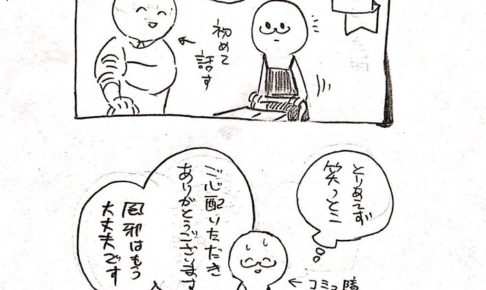 初めて
話す
とりあえず
笑っとこ
ご心配いただき
ありがとうございます
風邪はもう
大丈夫です
← コミュ障